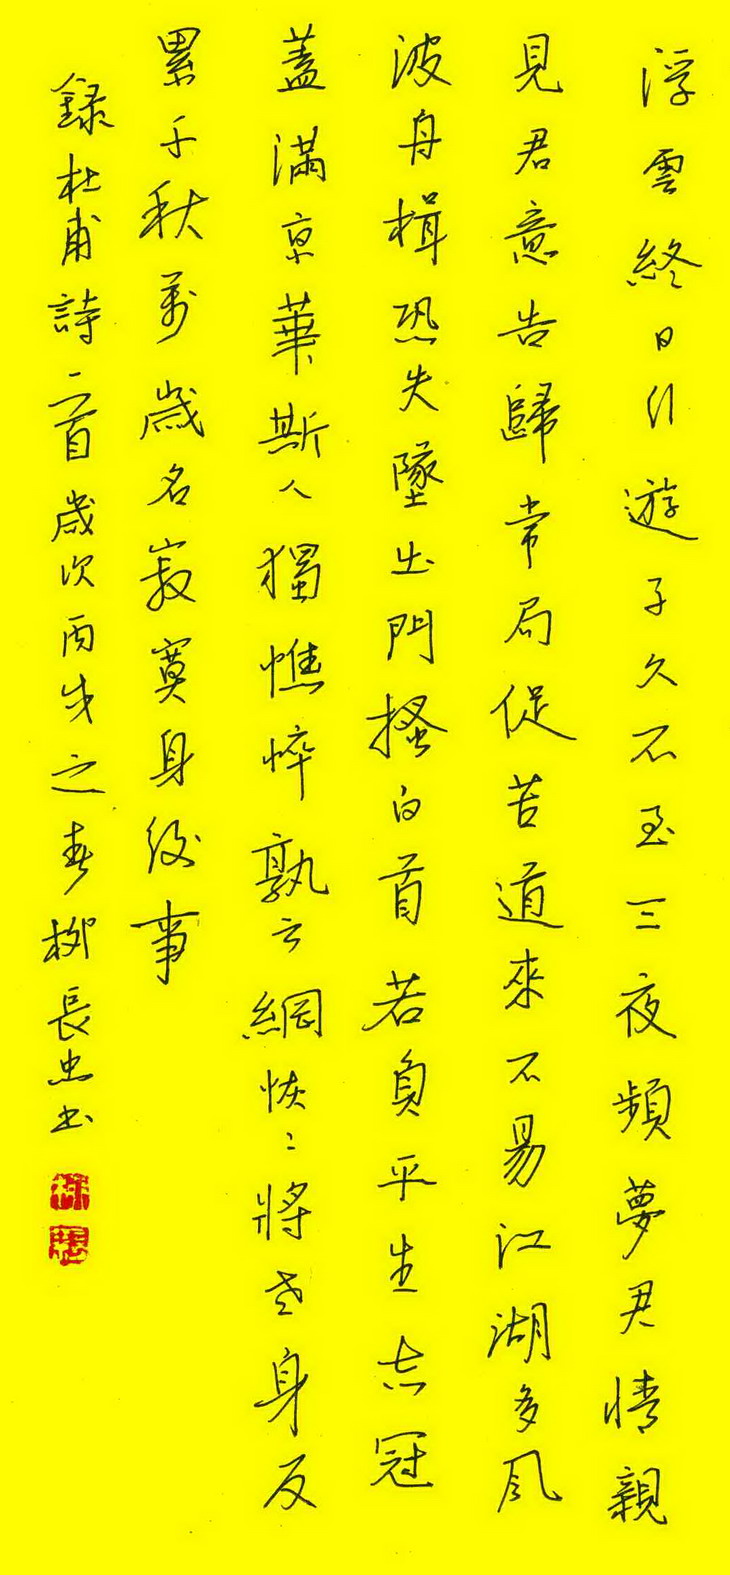 浮雲終日行遊子久不至三夜頻夢君情親
見君意告歸常局促苦道來不易江湖多風
波舟楫恐失墜出門搔白首若負平生志冠
蓋滿京華斯人獨憔悴孰云網恢〻將老身反
累千秋萬歲名寂寞身後事
錄杜甫詩一首歲次丙戌之春柳長忠書